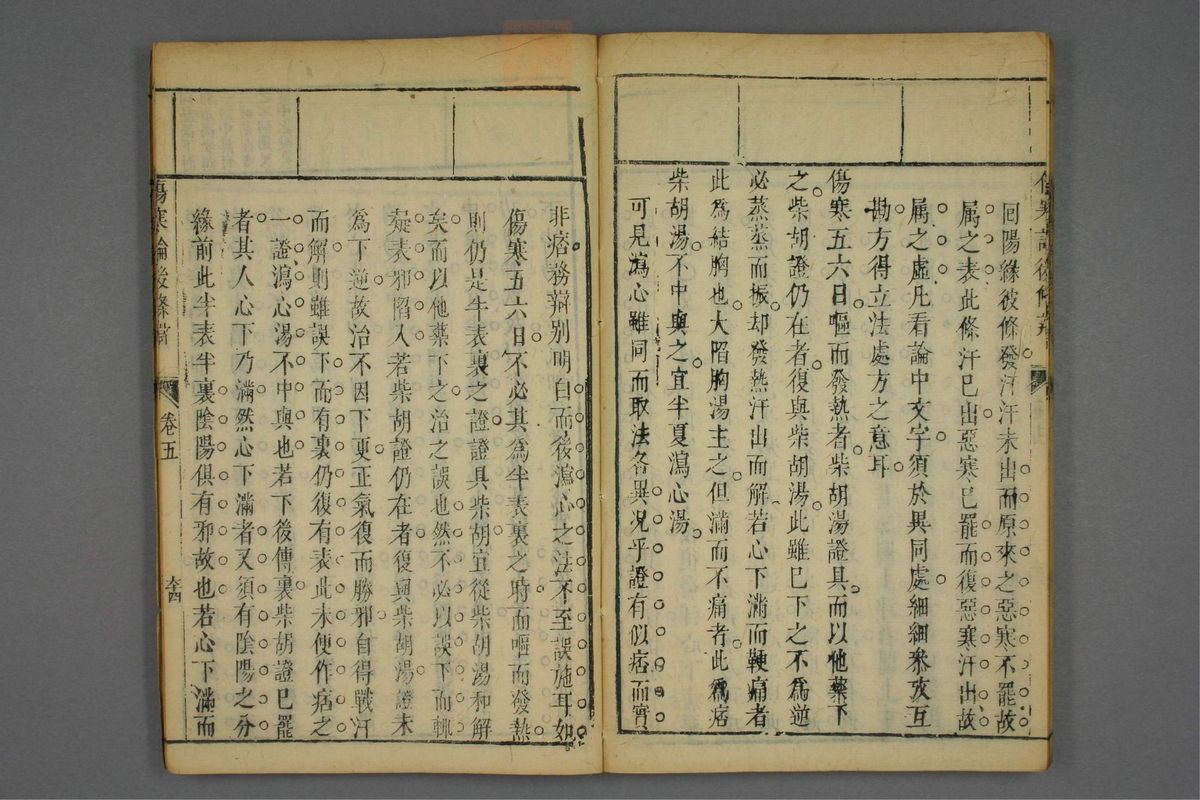 回陽緣彼條發汗汗未出而原來之惡寒不罷故
屬之表此條汗已出惡寒已罷而復惡寒汗出故
屬之虛凡看論中文字須於異同處細細叅攷互
勘方得立法處方之意耳
傷寒五六日嘔而發熱者柴胡湯證具而以他藥下
之柴胡證仍在者復與柴胡湯此雖已下之不為逆
必蒸蒸而振却發熱汗出而解若心下滿而鞕痛者
此為結胸也大陷胸湯主之但滿而不痛者此為痞
柴胡湯不中與之宜半夏瀉心湯
可見瀉心雖同而取法各異况乎證有似痞而實
非痞務辯別明白而後瀉心之法不至誤施耳如
傷寒五六日不必其為半表裏之時而嘔而發熱
則仍是半表裏之證證具柴胡宜從柴胡湯和解
矣而以他藥下之治之誤也然不必以誤下而輒
疑表邪陷入若柴胡證仍在者復與柴胡湯證未
為下逆故治不因下更正氣復而勝邪自得戰汗
而解則雖誤下而有裏仍復有表此未便作痞之
一證瀉心湯不中與也若下後傳裏柴胡證已罷
者其人心下乃滿然心下滿者又須有陰陽之分
緣前此半表半裏陰陽俱有邪故也若心下滿而
傷寒論後條辯
卷五